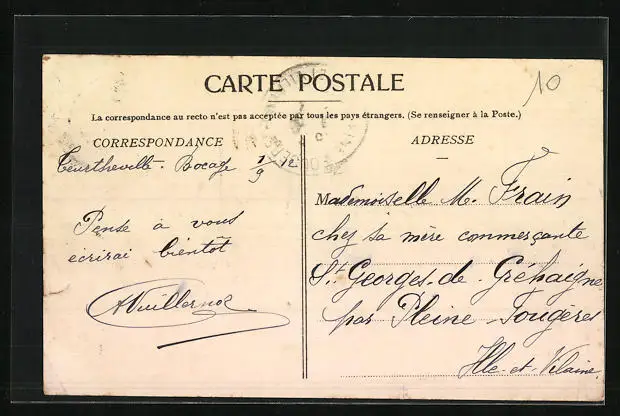 10
CARTE POSTALE
La correspondance au recto n'est pas acceptée par tous les pays étrangers. (Se renseigner à la Poste.)
CORRESPONDANCE
Teurthéville-Bocage 1/9
Pense à vous
écrirai bientôt
AVuillermoz
ADRESSE
Mademoiselle M. Frain
chez sa mère commerçante
St Georges-de-Gréhaigne
par Pleine-Fougères
Ille-et-Vilaine